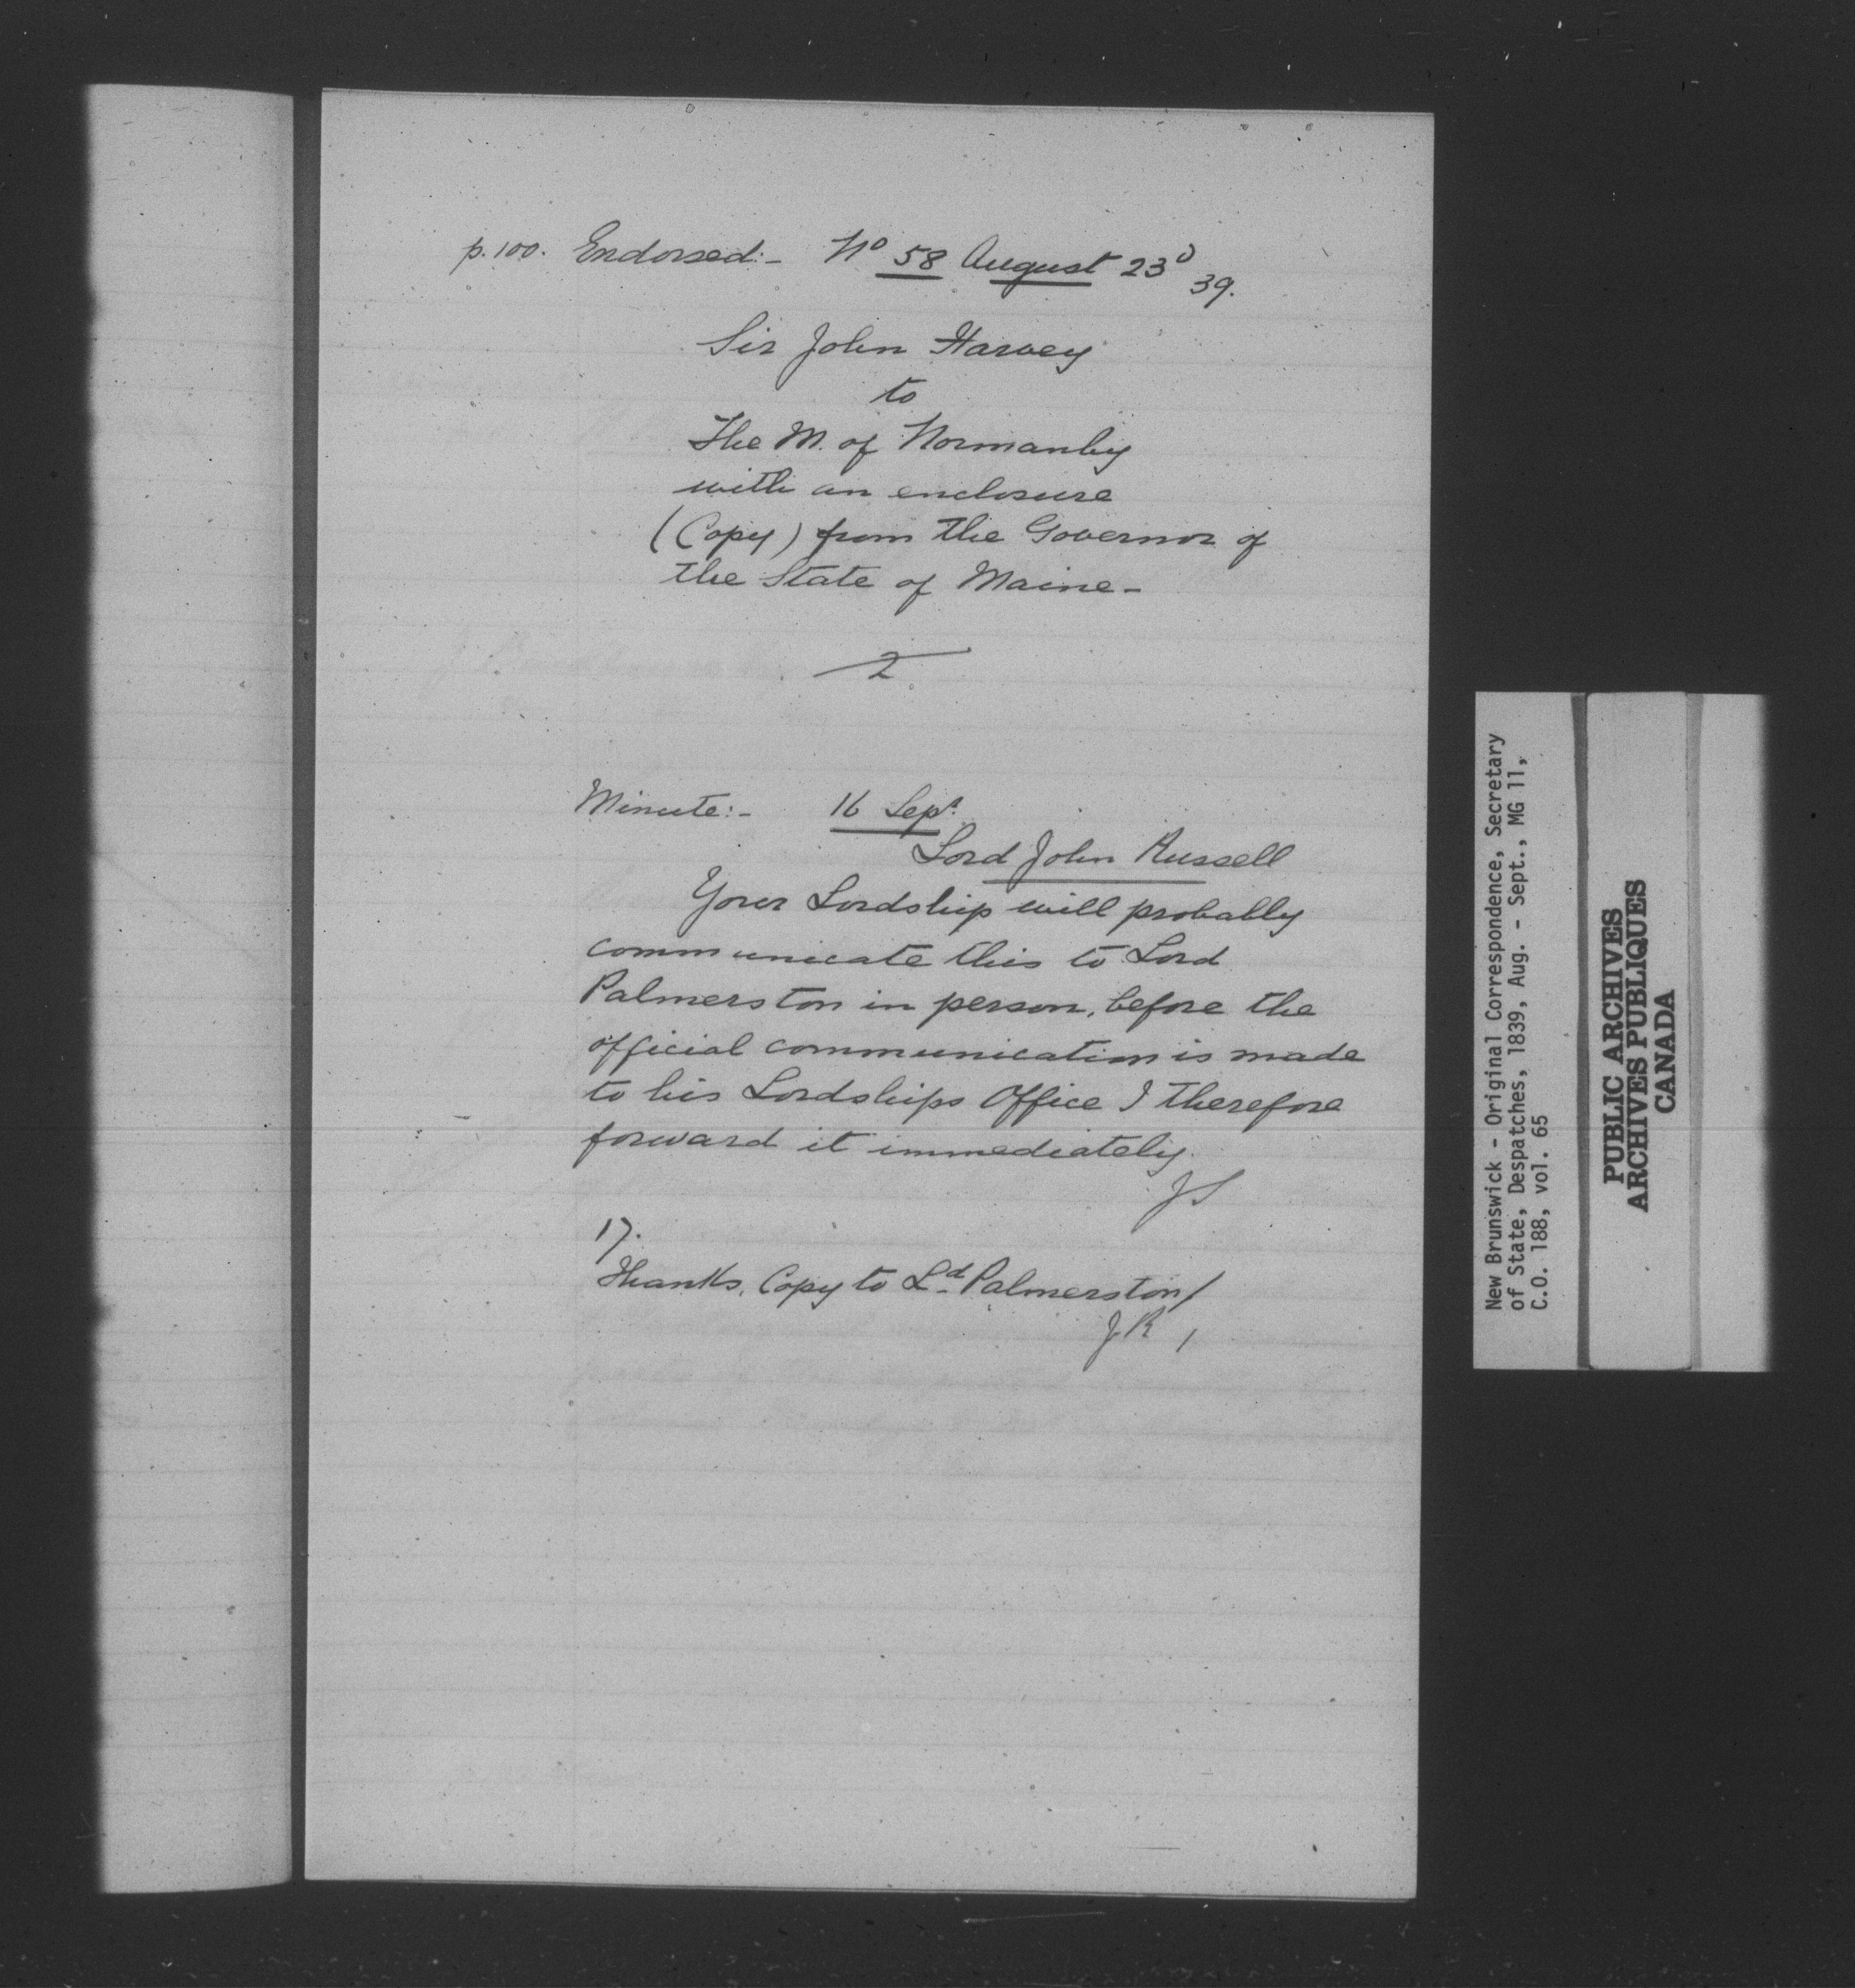 p.100. Endorsed:- No 58 August 23d 39.
Sir John Harvey
to
The M. of Normanby
with an enclosure
(Copy) from the Governor of
the State of Maine-
2
Minute:- 16 Sept.
Lord John Russell
Your Lordship will probably
communicate this to Lord
Palmerston in person, before the
official communication is made
to his Lordships Office I therefore
forward it immediately.
JS
17.
Thanks, Copy to Ld Palmerston/
JR /
New Brunswick - Original Correspondence, Secretary
of State, Despatches, 1839, Aug. - Sept., MG 11,
C.O. 188, vol. 65
PUBLIC ARCHIVES
ARCHIVES PUBLIQUES
CANADA